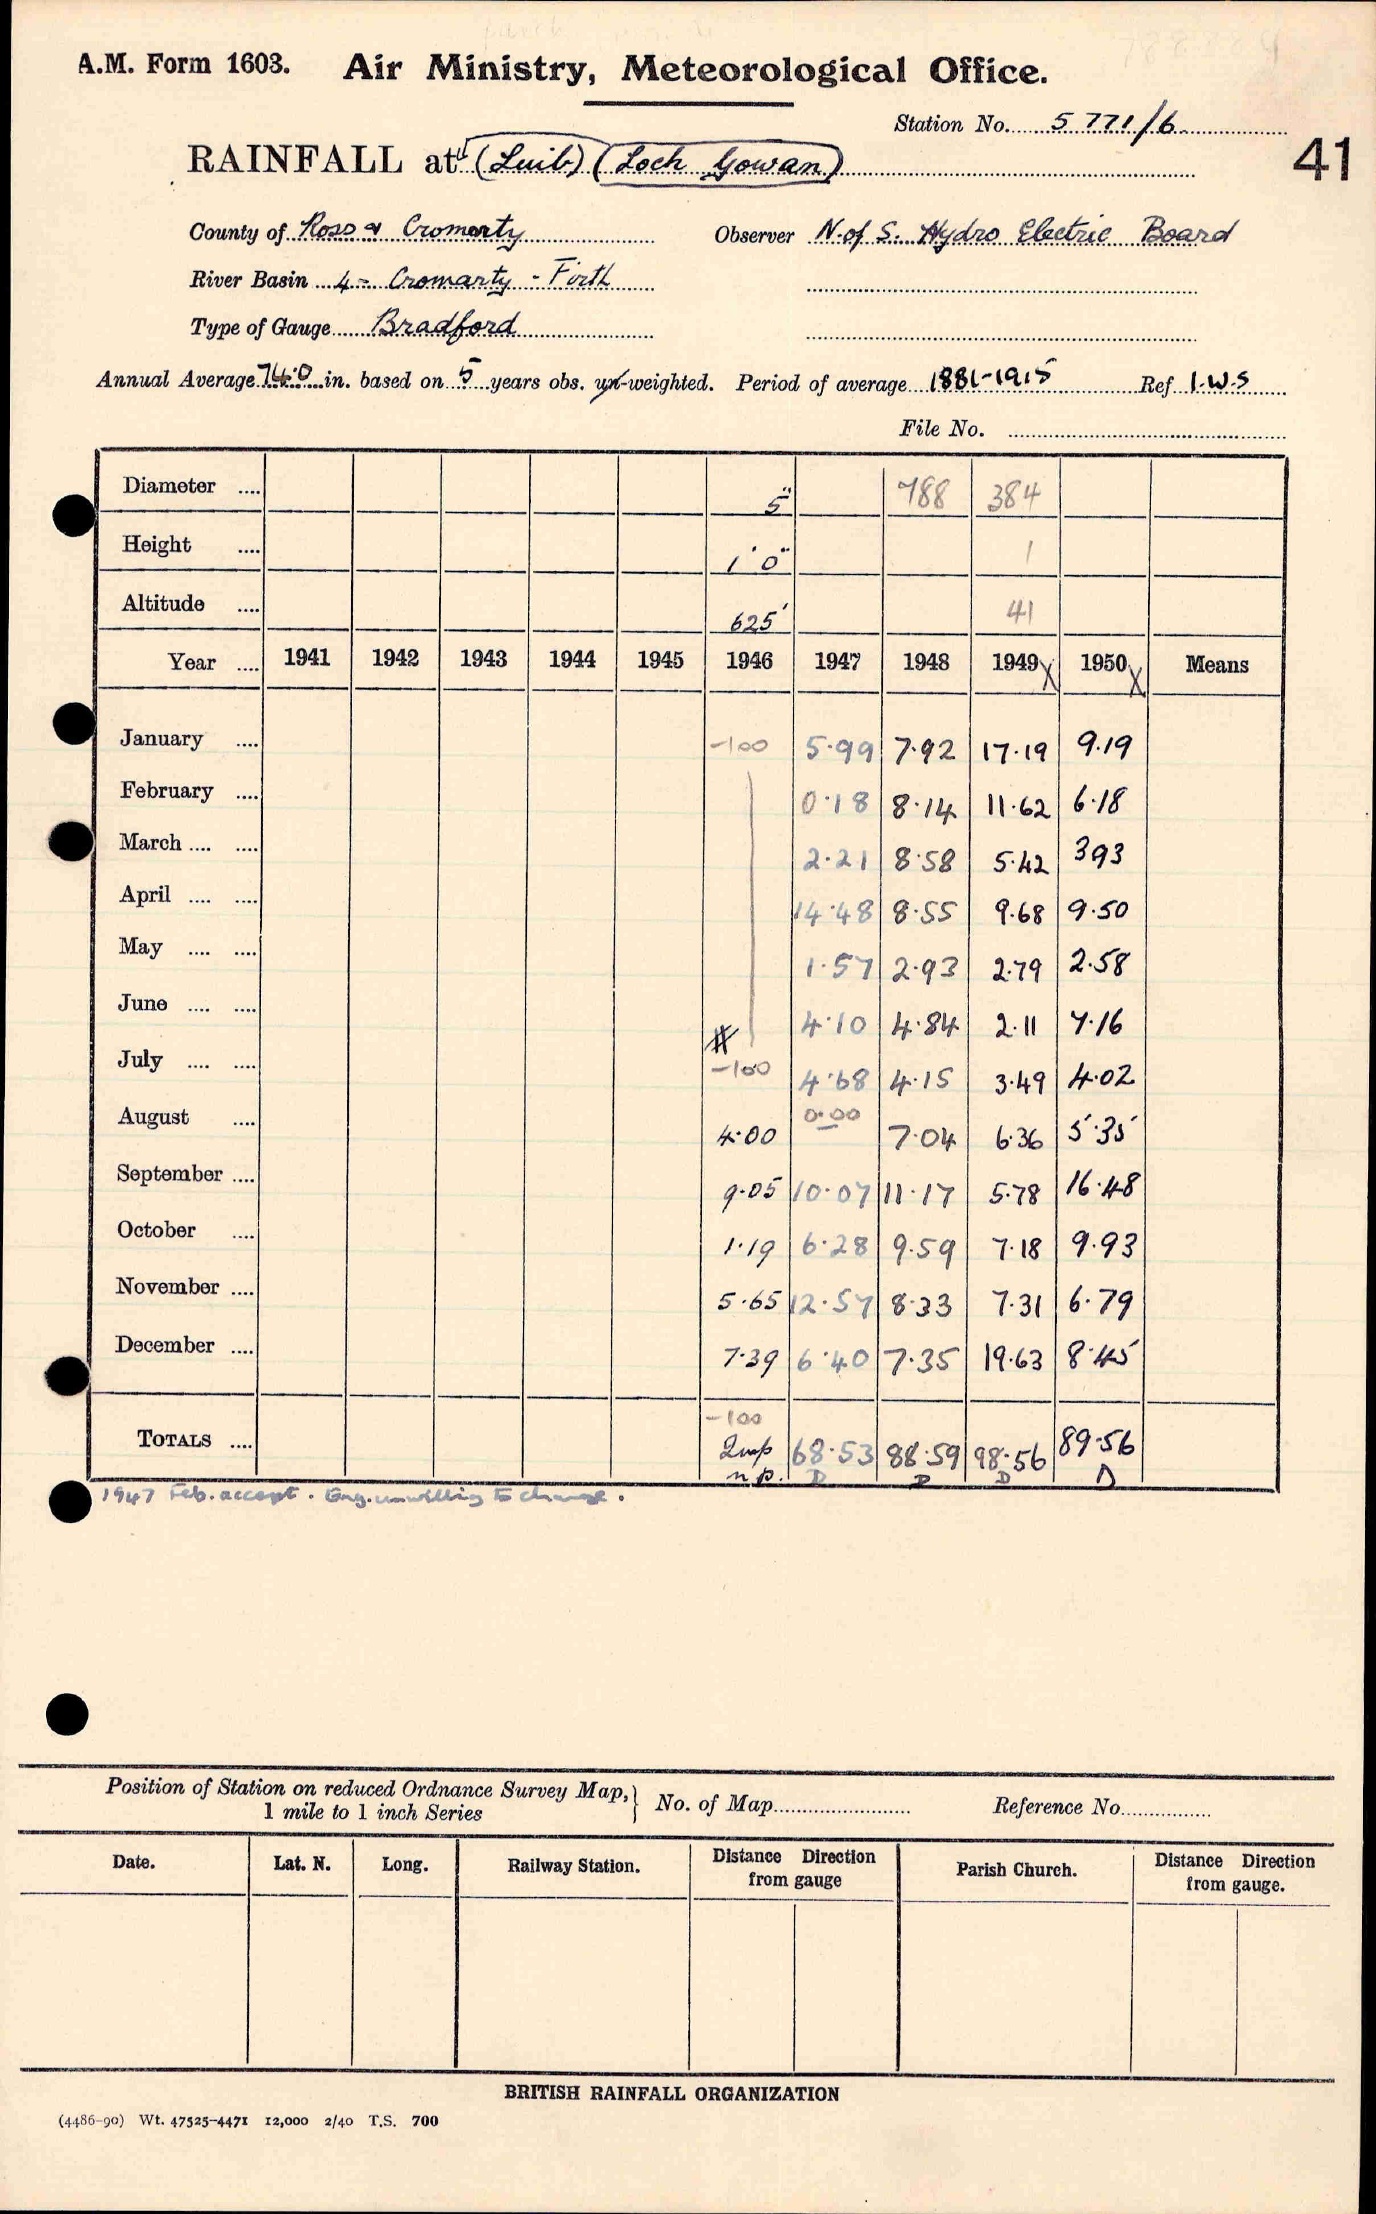 A.M. Form 1603. Air Ministry, Meteorological Office.
Station No. 5771/6
41
RAINFALL at (Luib) (Loch Gowan)
County of Ross & Cromarty Observer N. of S. Hydro Electric Board
River Basin 4 - Cromarty - Firth
Type of Gauge Bradford
Annual Average 74.0 in. based on 5 years obs. un-weighted. Period of average 1881-1915 Ref I.W.S
File No.
Diameter .... 5" 788 384
Height .... 1' 0" 1
Altitude .... 625' 41
Year .... 1941 1942 1943 1944 1945 1946 1947 1948 1949 X 1950 X Means
January .... -100 5.99 7.92 17.19 9.19
February .... 0.18 8.14 11.62 6.18
March .... .... 2.21 8.58 5.42 3 93
April .... .... 14.48 8.55 9.68 9.50
May .... .... 1.57 2.93 2.79 2.58
June .... .... # 4.10 4.84 2.11 7.16
July .... .... -100 4.68 4.15 3.49 4.02
August .... 4.00 0.00 7.04 6.36 5.35
September .... 9.05 10.07 11.17 5.78 16.48
October .... 1.19 6.28 9.59 7.18 9.93
November .... 5.65 12.57 8.33 7.31 6.79
December .... 7.39 6.40 7.35 19.63 8.45
-100
TOTALS .... 68.53 88.59 98.56 89.56
n.p. D D D D
1947 Feb. accept. Eng. unwilling to change.
Position of Station on reduced Ordnance Survey Map,
1 mile to 1 inch Series } No. of Map Reference No.
Date. Lat. N. Long. Railway Station. Distance Direction from gauge Parish Church. Distance Direction from gauge.
BRITISH RAINFALL ORGANIZATION
(4486-90) Wt. 47525-4471 12,000 2/40 T.S. 700